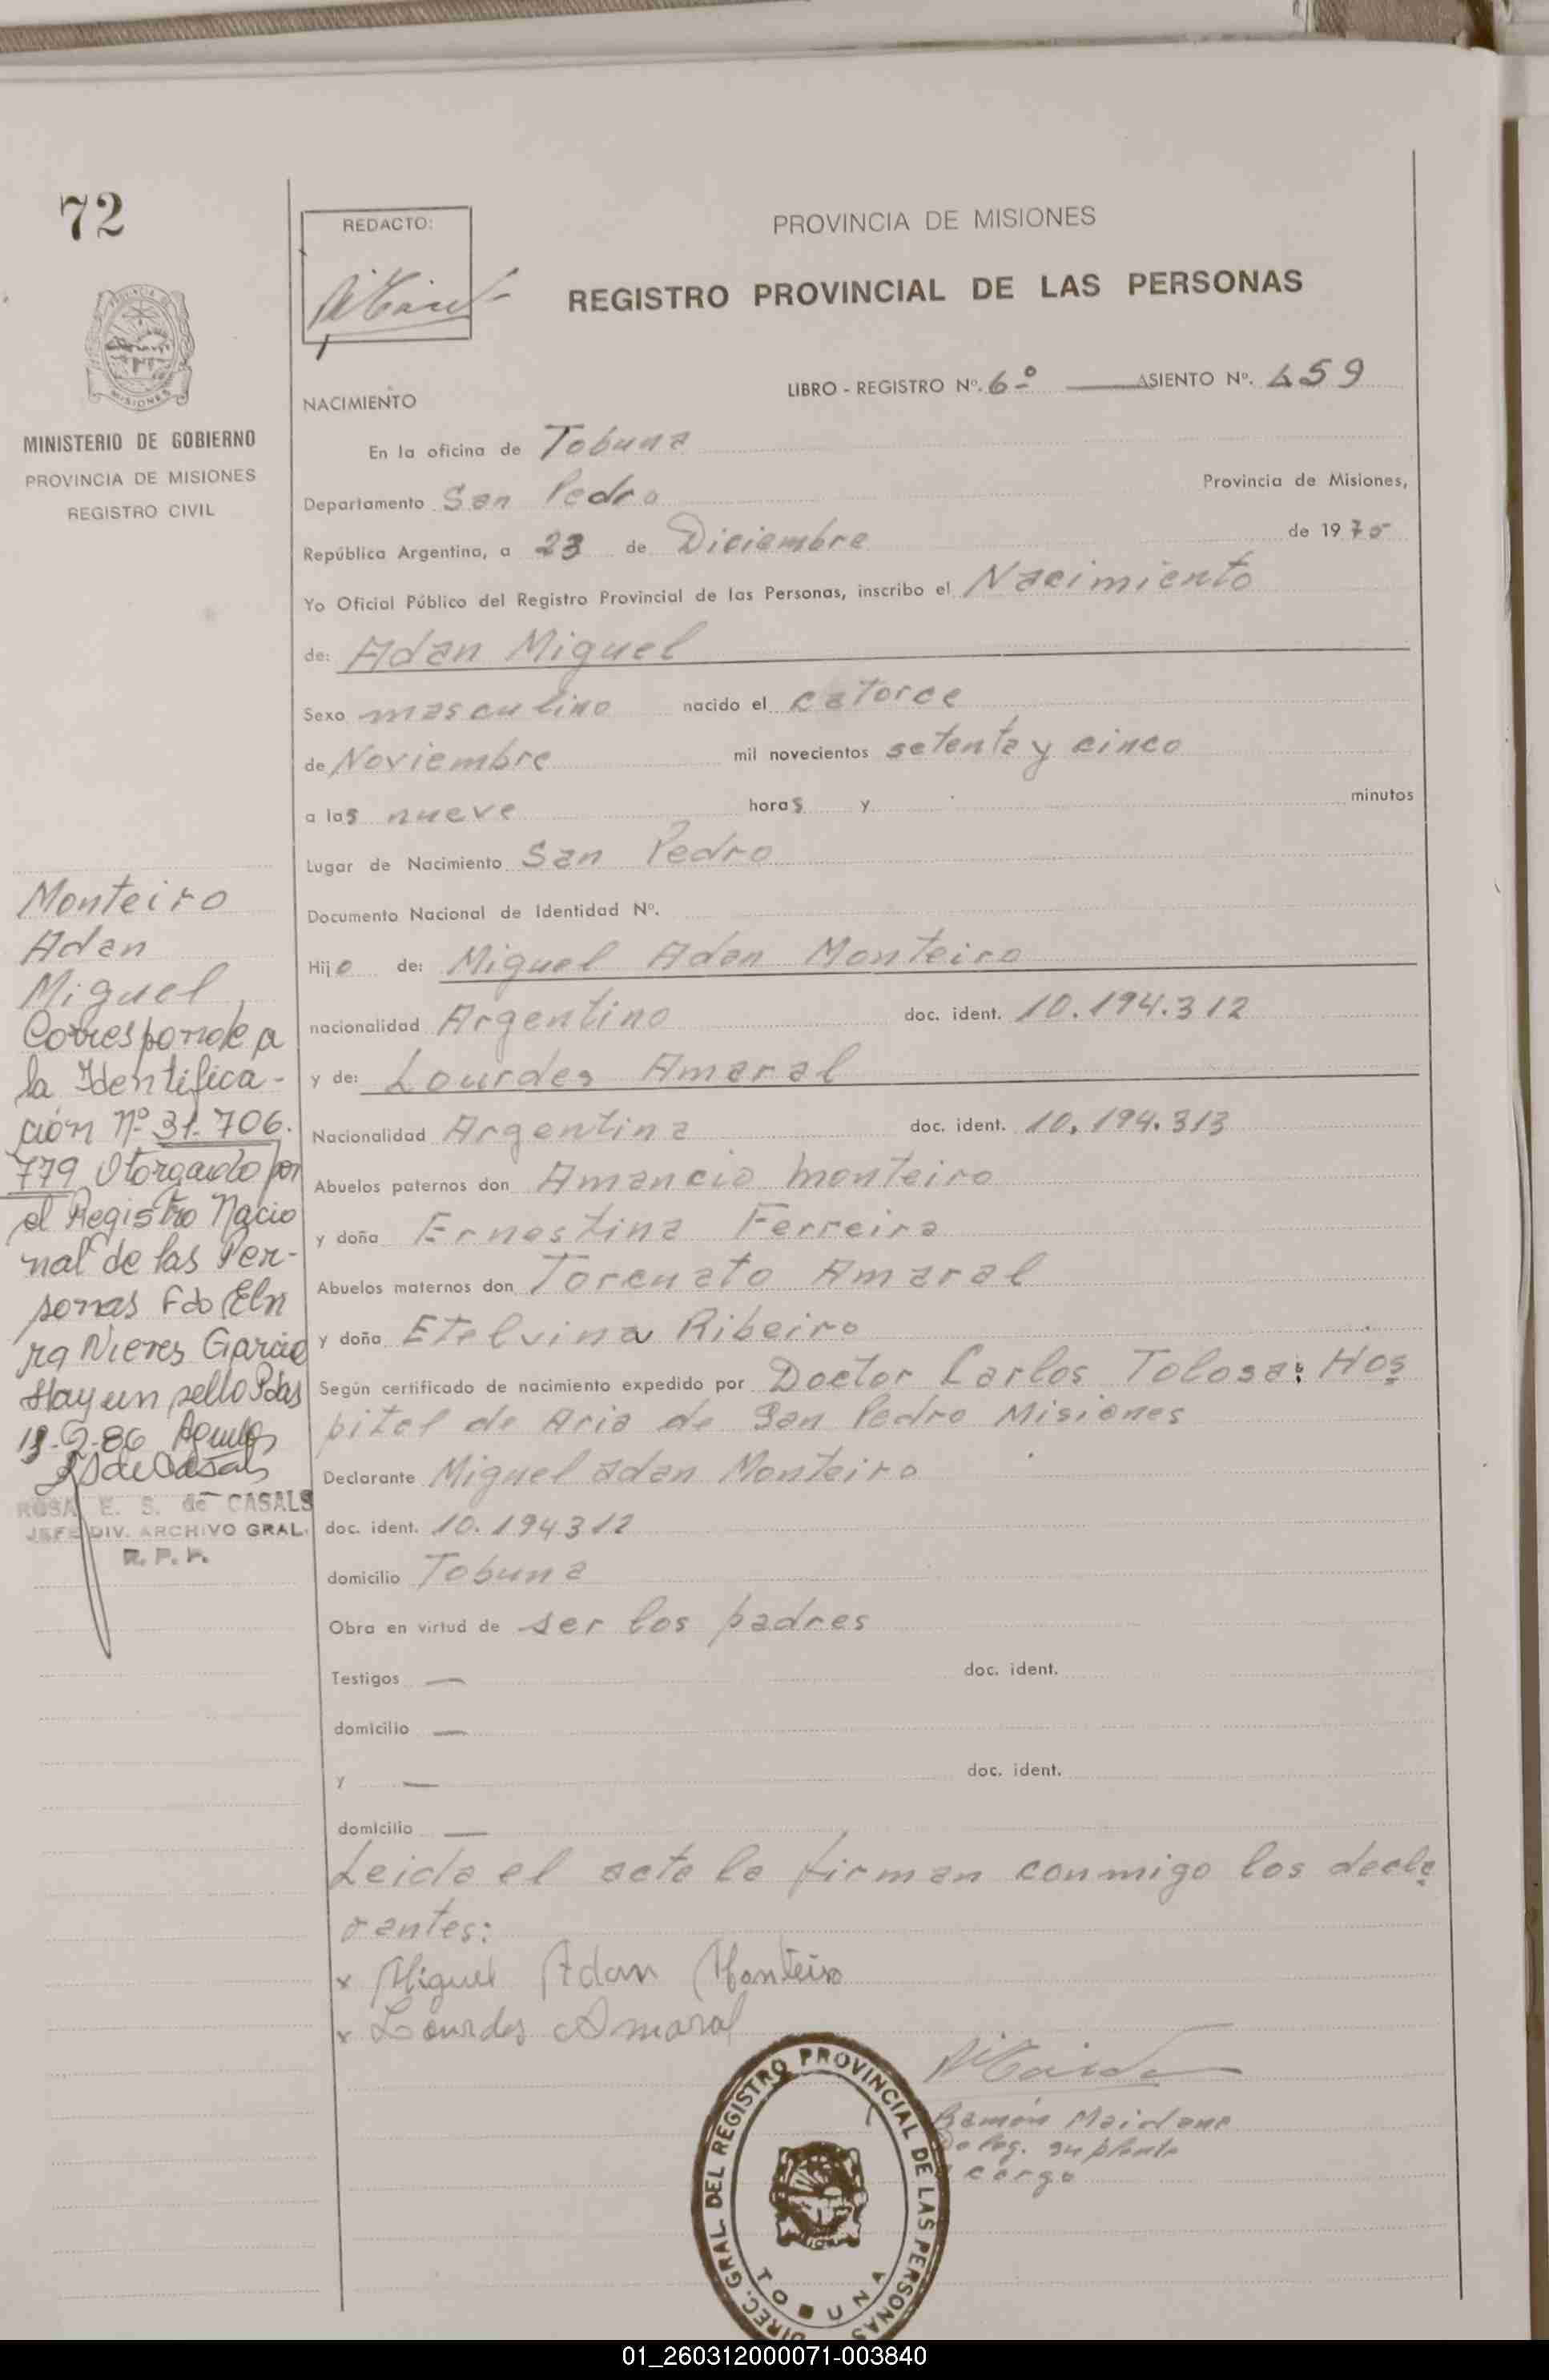 72
MINISTERIO DE GOBIERNO
PROVINCIA DE MISIONES
REGISTRO CIVIL
Monteiro
Adan
Miguel
Corresponde a
la Identifica-
ción Nº 31.706.
779 Otorgado por
el Registro Nacio
nal de las Per-
sonas Fdo
Nieves Garcia
Hay un sello Pdas
-86
ROSA E. S. de CASALS
JEFE DIV. ARCHIVO GRAL.
R. P. P.
REDACTO:
PROVINCIA DE MISIONES
REGISTRO PROVINCIAL DE LAS PERSONAS
LIBRO - REGISTRO Nº. 6º ASIENTO Nº. 459
NACIMIENTO
En la oficina de Tobuna
Departamento San Pedro Provincia de Misiones,
República Argentina, a 23 de Diciembre de 1975
Yo Oficial Público del Registro Provincial de las Personas, inscribo el Nacimiento
de: Adan Miguel
Sexo masculino nacido el catorce
de Noviembre mil novecientos setenta y cinco
a las nueve horas y minutos
Lugar de Nacimiento San Pedro
Documento Nacional de Identidad Nº.
Hijo de: Miguel Adan Monteiro
nacionalidad Argentino doc. ident. 10.194.312
y de: Lourdes Amaral
Nacionalidad Argentina doc. ident. 10.194.313
Abuelos paternos don Amancio Monteiro
y doña Ernestina Ferreira
Abuelos maternos don Torcuato Amaral
y doña Etelvina Ribeiro
Según certificado de nacimiento expedido por Doctor Carlos Tolosa: Hos
pital de Aria de San Pedro Misiones
Declarante Miguel adan Monteiro
doc. ident. 10.194312
domicilio Tobuna
Obra en virtud de ser los padres
Testigos — doc. ident.
domicilio —
y — doc. ident.
domicilio —
Leida el acta la firman conmigo los decla
rantes:
x Miguel Adan Monteiro
x Lourdes Amaral
Ramón Maidana
Deleg. suplente
a cargo
DIREC. GRAL. DEL REGISTRO PROVINCIAL DE LAS PERSONAS
TOBUNA
01_260312000071-003840